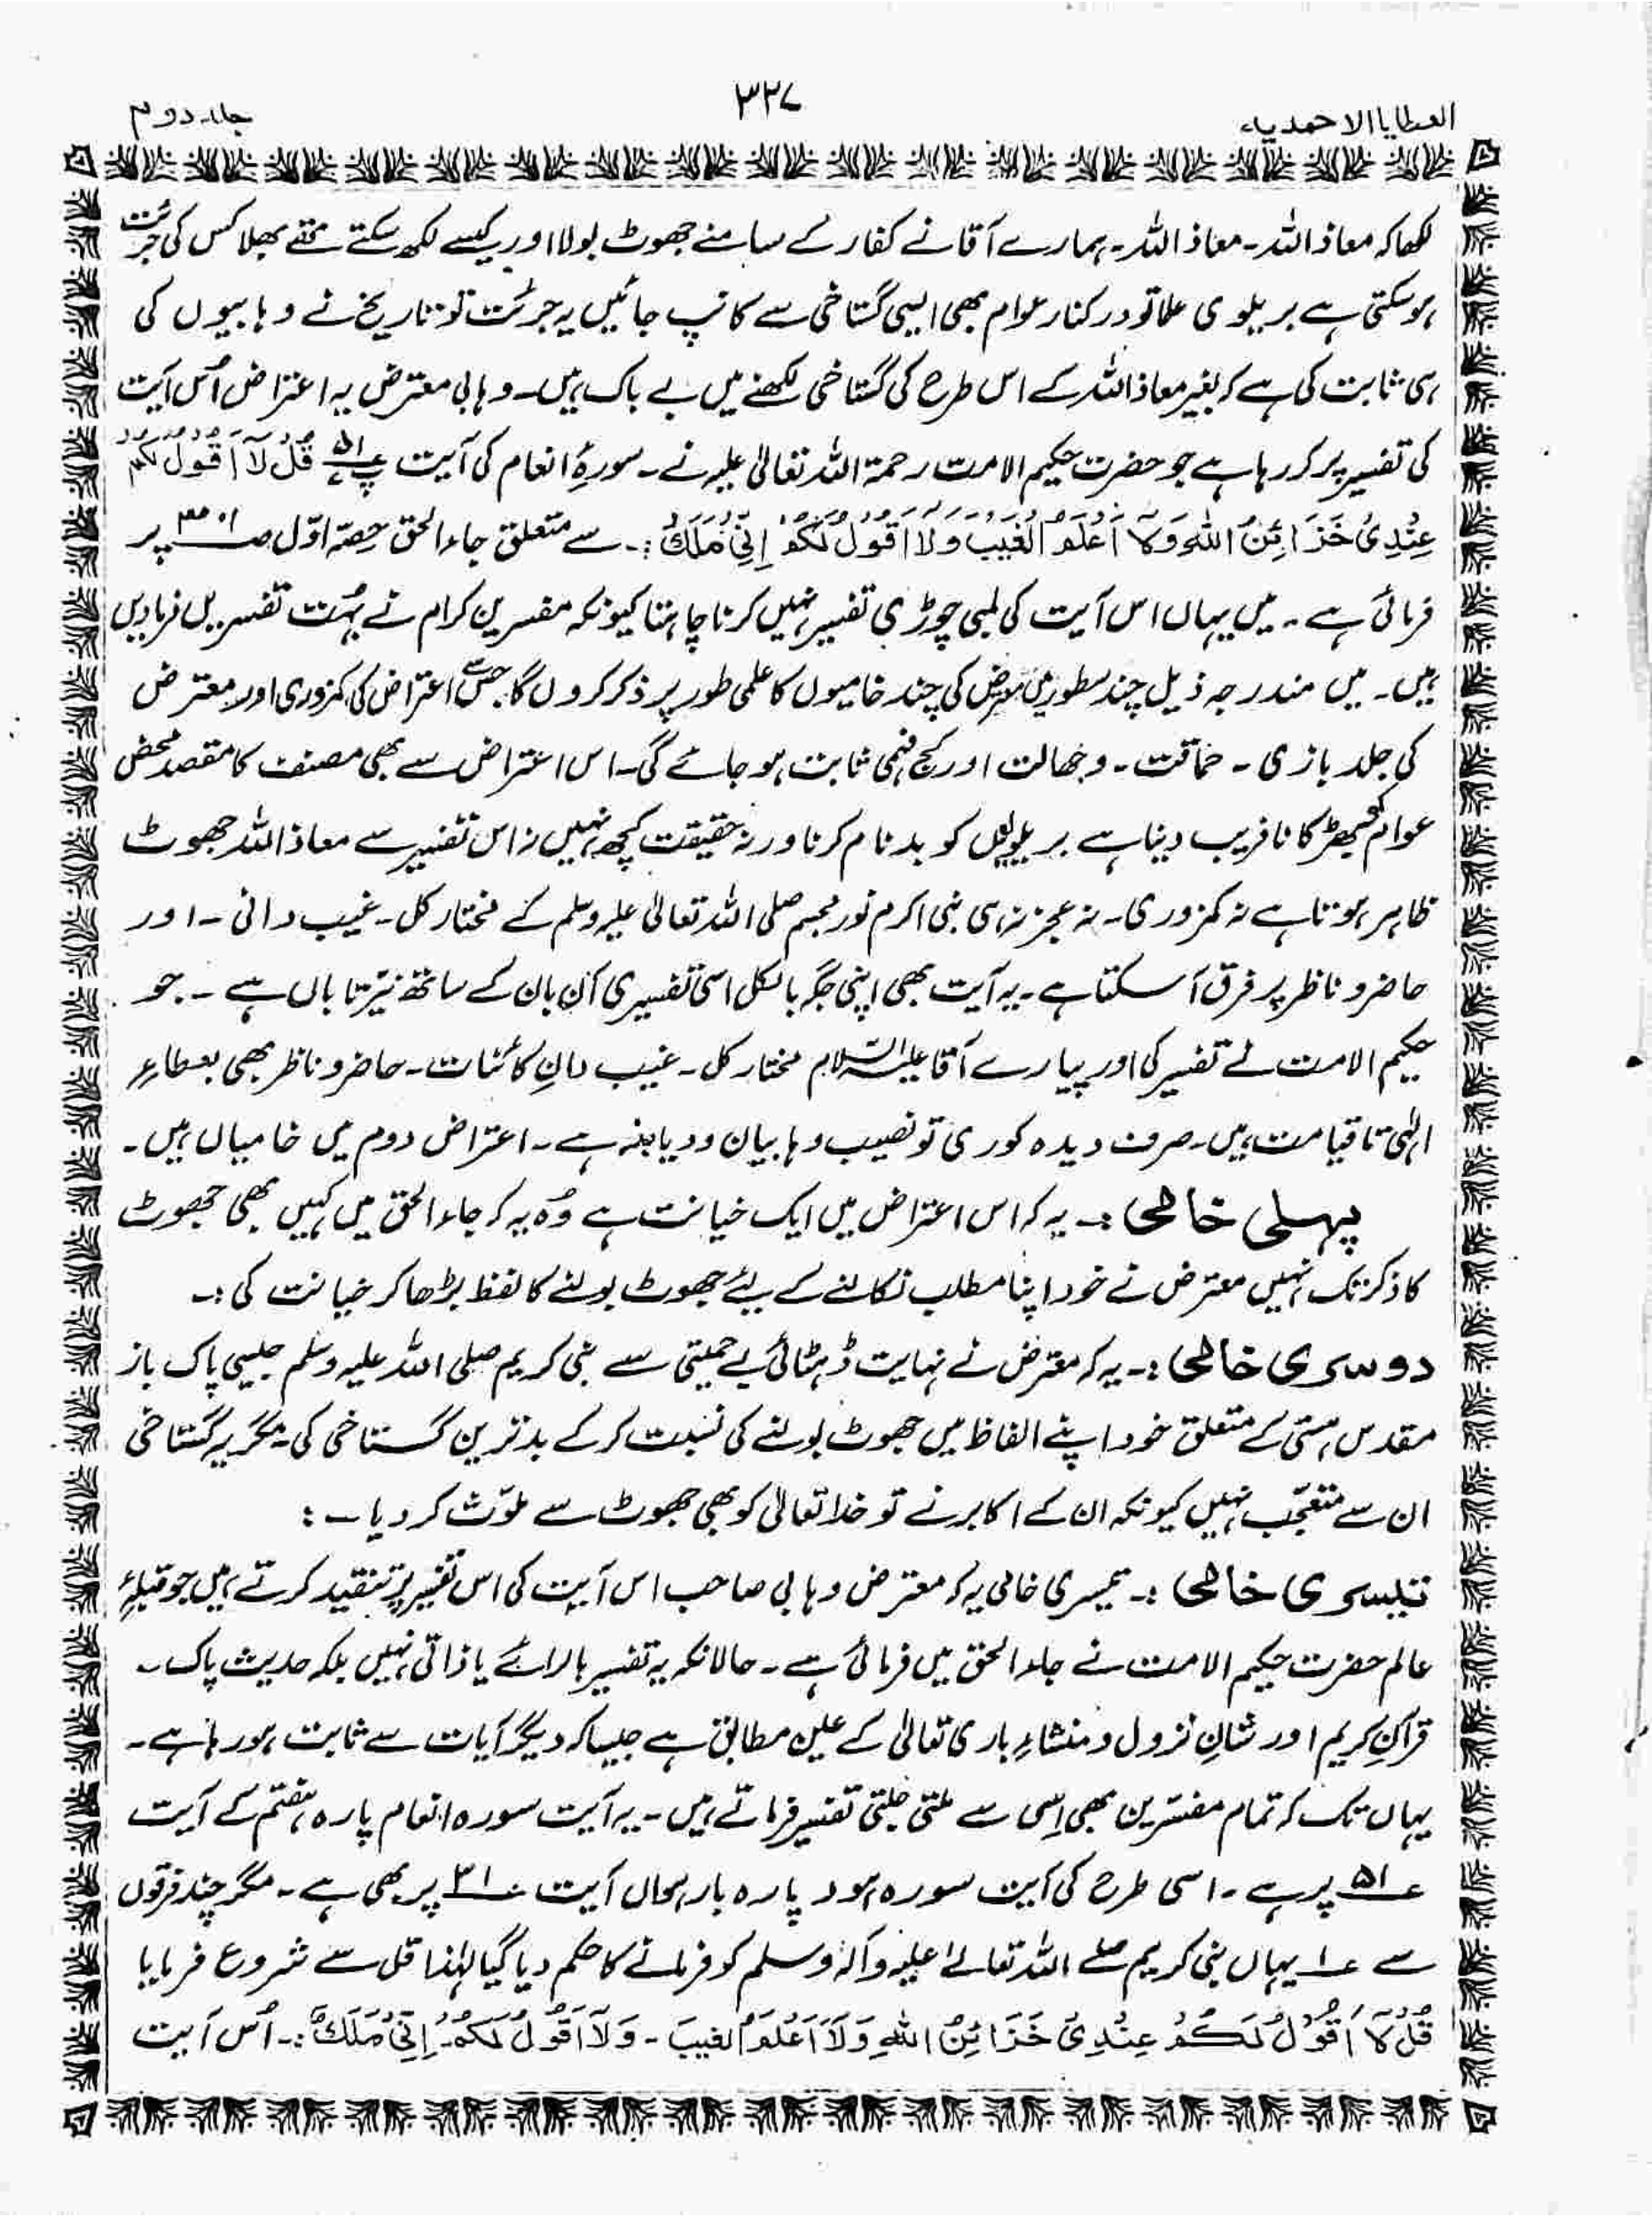 العطایا الاحمدیہ
۳۲۷
جلد دوم
لکھا کہ معاذ اللہ۔ معاذ اللہ۔ ہمارے آقا نے کفار کے سامنے جھوٹ بولا اور کیسے لکھ سکتے تھے بھلا کس کی جرئت
ہو سکتی ہے بریلوی علما تو در کنار عوام بھی ایسی گستاخی سے کانپ جائیں یہ جرئت تو تاریخ نے وہابیوں کی
ہی ثابت کی ہے کہ بغیر معاذ اللہ کے اس طرح کی گستاخی لکھنے میں بے باک ہیں۔ وہابی معترض یہ اعتراض اُس آیت
کی تفسیر پر کر رہا ہے جو حضرت حکیم الامت رحمۃ اللہ تعالیٰ علیہ نے۔ سورۂ انعام کی آیت ۵۱ پ قُلْ لَآ اَقُوْلُ لَکُمْ
عِنْدِیْ خَزَائِنُ اللہِ وَلَآ اَعْلَمُ الْغَیْبَ وَلَا اَقُوْلُ لَکُمْ اِنِّیْ مَلَکٌ :۔ سے متعلق جاء الحق حِصّہ اوّل صـ پر
فرمائی ہے۔ میں یہاں اس آیت کی لمبی چوڑی تفسیر نہیں کرنا چاہتا کیونکہ مفسرین کرام نے بہُت تفسیریں فرما دیں
ہیں۔ میں مندرجہ ذیل چند سطور میں معترض کی چند خامیوں کا علمی طور پر ذکر کروں گا جس سے اعتراض کی کمزوری اور معترض
کی جلد بازی۔ حماقت۔ وجھالت اور کج فہمی ثابت ہو جائے گی۔ اس اعتراض سے بھی مصنف کا مقصد محض
عوام کو بھڑکانا فریب دینا ہے بریلویوں کو بدنام کرنا ورنہ حقیقت کچھ نہیں نہ اس تفسیر سے معاذ اللہ جھوٹ
ظاہر ہوتا ہے نہ کمزوری۔ نہ عجز نہ ہی نبی اکرم نور مجسم صلی اللہ تعالیٰ علیہ وسلم کے مختار کل۔ غیب دانی۔ اور
حاضر و ناظر پر فرق آ سکتا ہے۔ یہ آیت بھی اپنی جگہ بالکل اسی تفسیری آن بان کے ساتھ نیّرِ تاباں ہے۔ جو
حکیم الامت نے تفسیر کی اور پیارے آقا علیہ السّلام مختار کل۔ غیب دانِ کائنات۔ حاضر و ناظر بھی بعطاءِ
الہٰی تا قیامت ہیں۔ صرف دیدہ کوری تو نصیب وہابیان و دیابنہ ہے۔ اعتراض دوم میں خامیاں ہیں۔
پہلی خامی :۔ یہ کہ اس اعتراض میں ایک خیانت ہے وُہ یہ کہ جاء الحق میں کہیں بھی جھوٹ
کا ذکر تک نہیں معترض نے خود اپنا مطلب نکالنے کے لیئے جھوٹ بولنے کا لفظ بڑھا کر خیانت کی :۔
دوسری خامی :۔ یہ کہ معترض نے نہایت ڈہٹائی بے حمیتی سے نبی کریم صلی اللہ علیہ وسلم جیسی پاک باز
مقدس ہستی کے متعلق خود اپنے الفاظ میں جھوٹ بولنے کی نسبت کر کے بدترین گستاخی کی۔ مگر یہ گستاخی
ان سے متعجّب نہیں کیونکہ ان کے اکابر نے تو خدا تعالیٰ کو بھی جھوٹ سے ملوّث کر دیا۔ :
تیسری خامی :۔ تیسری خامی یہ کہ معترض وہابی صاحب اس آیت کی اس تفسیر پر تنقید کرتے ہیں جو قبلۂ
عالم حضرت حکیم الامت نے جاء الحق میں فرمائی ہے۔ حالانکہ یہ تفسیر بالرائے یا ذاتی نہیں بلکہ حدیث پاک۔
قرآنِ کریم اور شانِ نزول و منشاءِ باری تعالیٰ کے عین مطابق ہے جیسا کہ دیگر آیات سے ثابت ہو رہا ہے۔
یہاں تک کہ تمام مفسّرین بھی اِسی سے ملتی جلتی تفسیر فرماتے ہیں۔ یہ آیت سورہ انعام پارہ ہفتم کے آیت
۵۱ پر ہے۔ اسی طرح کی آیت سورہ ہود پارہ بارہواں آیت ۳۱ پر بھی ہے۔ مگر چند فرقوں
سے ۱ یہاں نبی کریم صلے اللہ تعالےٰ علیہ وآلہٖ وسلم کو فرمانے کا حکم دیا گیا لہٰذا قل سے شروع فرمایا
قُلْ لَا اَقُوْلُ لَکُمْ عِنْدِیْ خَزَائِنُ اللہِ وَلَا اَعْلَمُ الغیبَ۔ وَلَا اَقُوْلُ لَکُمْ اِنِّیْ مَلَکٌ :۔ اُس آیت